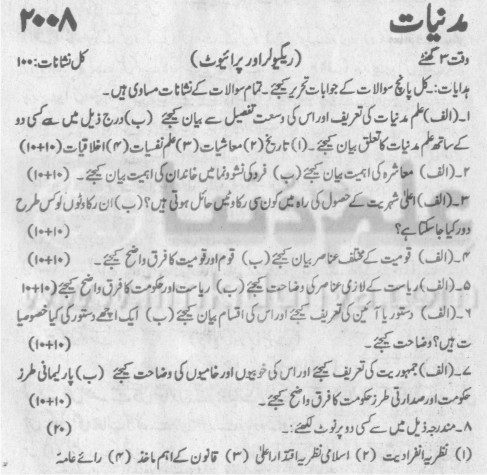 مدنیات ۲۰۰۸
وقت ۳ گھنٹے (ریگیولر اور پرائیوٹ) کل نشانات: ۱۰۰
ہدایات:۔ کل پانچ سوالات کے جوابات تحریر کیجئے۔ تمام سوالات کے نشانات مساوی ہیں۔
۱۔ (الف) علم مدنیات کی تعریف اور اس کی وسعت تفصیل سے بیان کیجئے (ب) درج ذیل میں سے کسی دو
کے ساتھ علم مدنیات کا تعلق بیان کیجئے۔ (۱) تاریخ (۲) معاشیات (۳) علم نفسیات (۴) اخلاقیات (۱۰+۱۰)
۲۔ (الف) معاشرہ کی اہمیت بیان کیجئے (ب) فرد کی نشوونما میں خاندان کی اہمیت بیان کیجئے۔ (۱۰+۱۰)
۳۔ (الف) اعلیٰ شہریت کے حصول کی راہ میں کون سی رکاوٹیں حائل ہوتی ہیں؟ (ب) ان رکاوٹوں کو کس طرح
دور کیا جا سکتا ہے؟ (۱۰+۱۰)
۴۔ (الف) قومیت کے مختلف عناصر بیان کیجئے (ب) قوم اور قومیت کا فرق واضح کیجئے۔ (۱۰+۱۰)
۵۔ (الف) ریاست کے لازمی عناصر کی وضاحت کیجئے (ب) ریاست اور حکومت کا فرق واضح کیجئے (۱۰+۱۰
۶۔ (الف) دستور یا آئین کی تعریف کیجئے اور اس کی اقسام بیان کیجئے (ب) ایک اچھے دستور کی کیا خصوصیا
ت ہیں؟ وضاحت کیجئے۔ (۱۰+۱۰)
۷۔ (الف) جمہوریت کی تعریف کیجئے اور اس کی خوبیوں اور خامیوں کی وضاحت کیجئے (ب) پارلیمانی طرز
حکومت اور صدارتی طرز حکومت کا فرق واضح کیجئے۔ (۱۰+۱۰)
۸۔ مندرجہ ذیل میں سے کسی دو پر نوٹ لکھئے:۔ (۲۰)
(۱) نظریہ انفرادیت (۲) اسلامی نظریہ اقتدار اعلیٰ (۳) قانون کے اہم ماخذ (۴) رائے عامہ